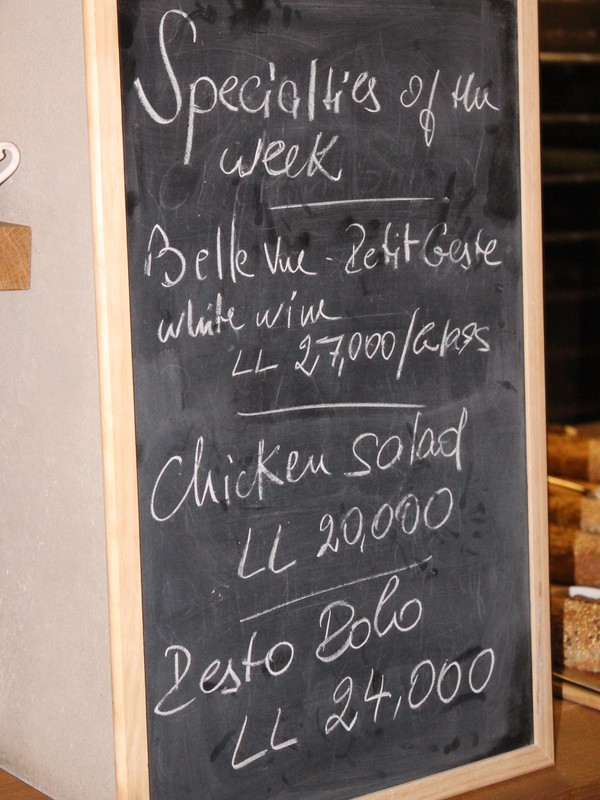 Specialties of the
week
Belle Vue - Petit Geste
white wine
LL 27,000/Glass
Chicken salad
LL 20,000
Pesto Bolo
LL 24,000